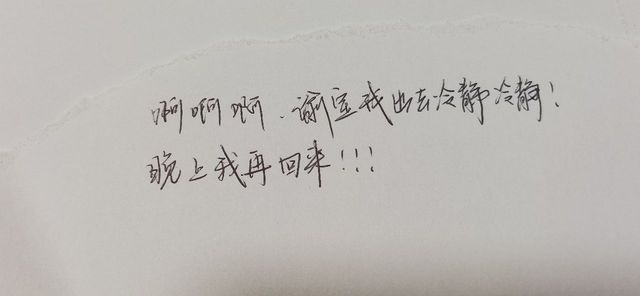 啊啊啊、谕宣我出去冷静冷静!
晚上我再回来!!!